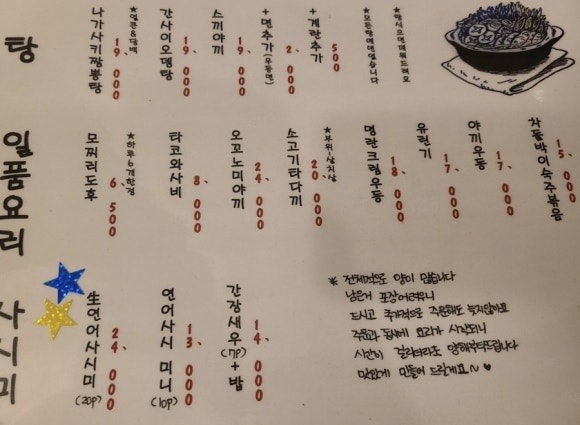 탕
나가사키짬뽕탕 19,000
★얼큰&담백
간사이오뎅탕 19,000
스끼야끼 19,000
+면추가(우동면) 2,000
+계란추가 500
★모든탕에면있습니다
★탕식으면데워드려요
일품요리
모찌리도후 6,500
★하루6개한정
타코와사비 8,000
오꼬노미야끼 24,000
소고기타다끼 20,000
★부위-삼치살
명란크림우동 18,000
유린기 17,000
야끼우동 17,000
차돌박이숙주볶음 15,000
사시미
生연어사시미(20p) 24,000
연어사시미니(10p) 13,000
간장새우(7p)+밥 14,000
※ 전체적으로 양이 많습니다
남은거 포장어려우니
드시고 추가적으로 주문해도 늦지않아요
주문과 동시에 요리가 시작되니
시간이 걸리더라도 양해부탁드립니다
맛있게 만들어 드릴게요~♥